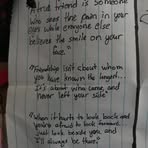 "A true friend is someone
who sees the pain in your
eyes while everyone else
believes the smile on your
face."
"Friendship isn't about whom
you have known the longest...
It's about who came, and
never left your side"
"When it hurts to look back and
you're afraid to look forward,
Just look beside you, and
I'll always be there."